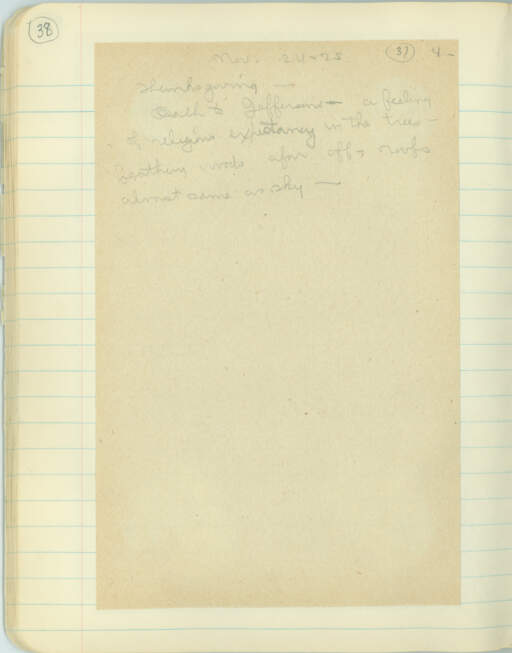 38
Nov. 24-25 37 4-
Thanksgiving —
to Jefferson — a feeling
of religious expectancy in the trees —
feathery woods afar off, roofs
almost same as sky —